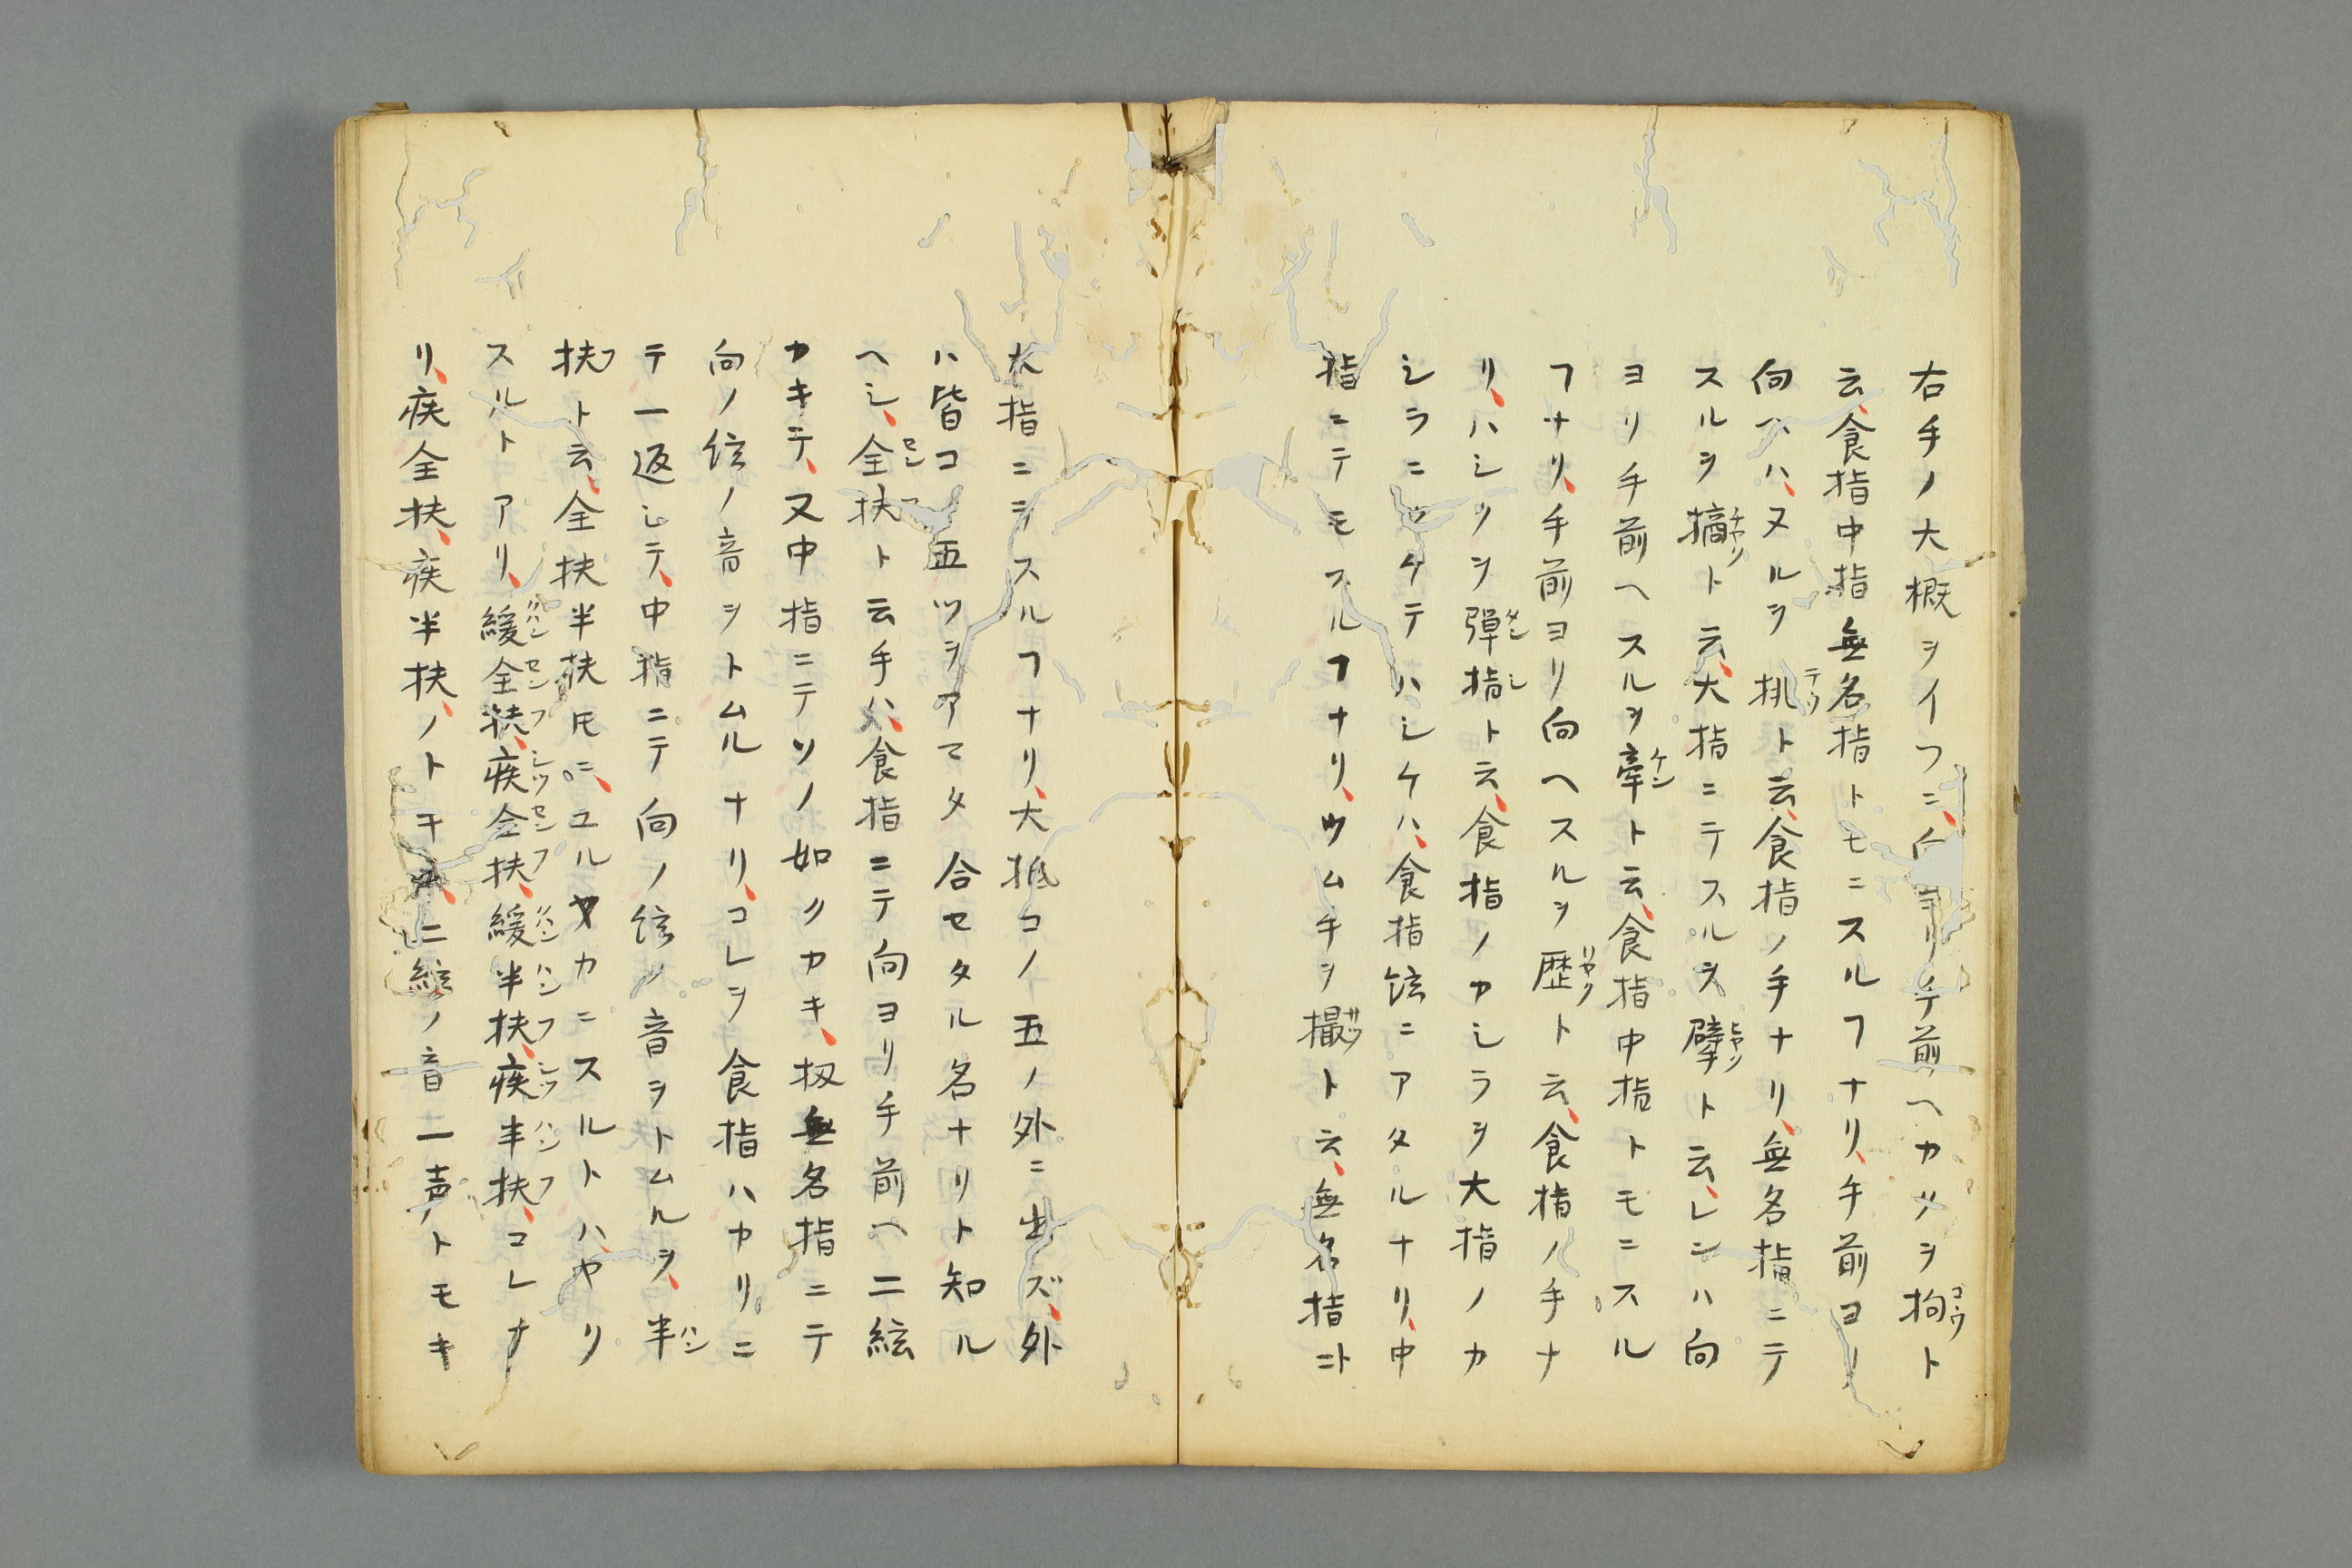 右手ノ大概ヲイフニ、向ヨリ手前ヘカクヲ拘ト
云、食指中指無名指トモニスルヿナリ、手前ヨリ
向ヘハ子ルヲ挑ト云、食指ノ手ナリ、無名指ニテ
スルヲ摘ト云、大指ニテスルヲ擘ト云、レンハ向
ヨリ手前ヘスルヲ牽ト云、食指中指トモニスル
ヿナリ、手前ヨリ向ヘスルヲ歴ト云、食指ノ手ナ
リ、ハシクヲ弾指ト云、食指ノカシラヲ大指ノカ
シラニツケテハシケハ、食指弦ニアタルナリ、中
指ニテモスルヿナリ、ツムヲ撮ト云、無名指ト
大指ニテスルヿナリ、大抵コノ五ノ外ニ出ズ、外
ハ皆コ五ツヲアマタ合セタル名ナリト知ル
ヘシ、全扶ト云手ハ、食指ニテ向ヨリ手前ヘ二絃
カキテ、又中指ニテソノ如クカキ、扨無名指ニテ
向ノ弦ノ音ヲトムルナリ、コレヲ食指ハカリニ
テ一返シテ、中指ニテ向ノ弦ノ音ヲトムルヲ、半
扶ト云、全扶半扶𪜈ニ、ユルヤカニスルトハヤク
スルトアリ、緩全扶、疾全扶、緩半扶、疾半扶、コレナ
リ、疾全扶、疾半扶、ノトキ二絃ノ音一声ノトモキ